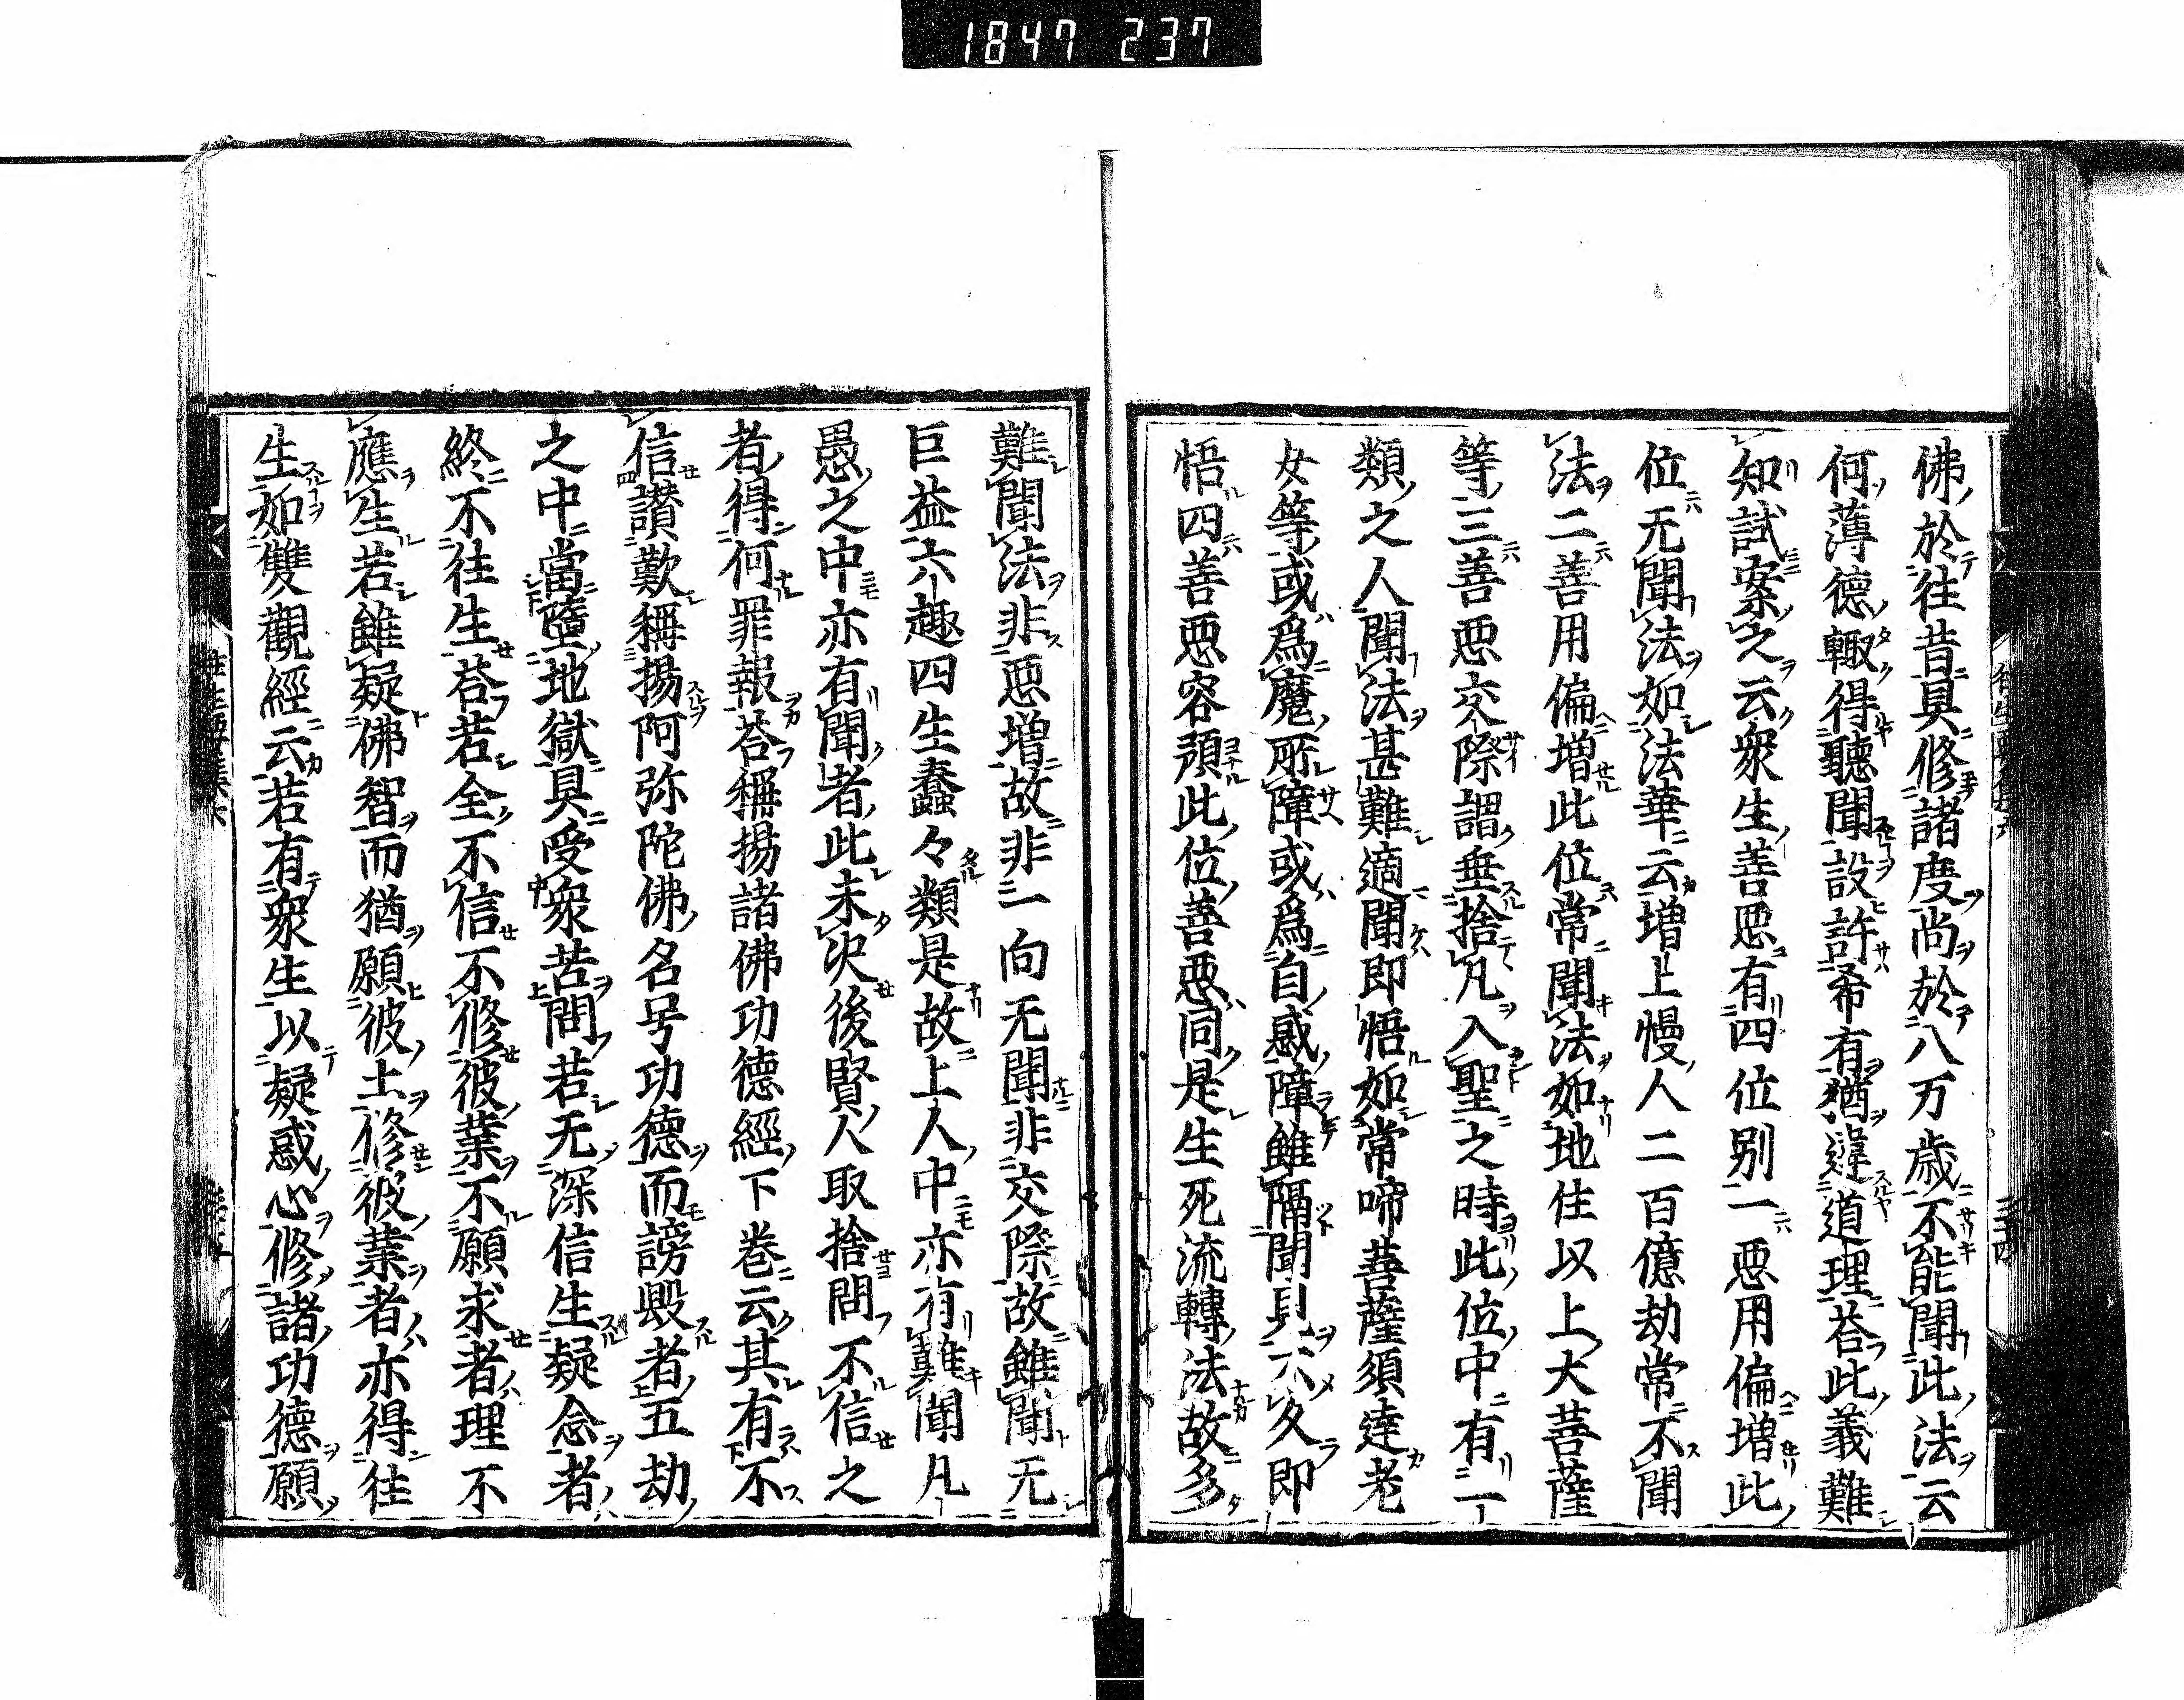 1847 237
佛於往昔具修諸度尚於八万歳不能聞此法云
何薄德輙得聽聞設許希有猶違道理荅此義難
知試案之云衆生善惡有四位別一惡用偏增此
位无聞法如法華云增上慢人二百億劫常不聞
法二善用偏增此位常聞法如地住以上大菩薩
等三善惡交際謂垂捨凡入聖之時此位中有一
類之人聞法甚難適聞即悟如常啼菩薩須達老
女等或爲魔所障或爲自惑障雖隔聞見不久即
悟四善惡容預此位善惡同是生死流轉法故多
難聞法非惡增故非一向无聞非交際故雖聞无
巨益六趣四生蠢々類是故上人中亦有難聞凡
愚之中亦有聞者此未决後賢人取捨問不信之
者得何罪報荅稱揚諸佛功德經下卷云其有不
信讃歎稱揚阿弥陀佛名号功德而謗毀者五劫
之中當墮地獄具受衆苦問若无深信生疑念者
終不往生荅若全不信不修彼業不願求者理不
應生若雖疑佛智而猶願彼土修彼業者亦得往
生如雙觀經云若有衆生以疑惑心修諸功德願